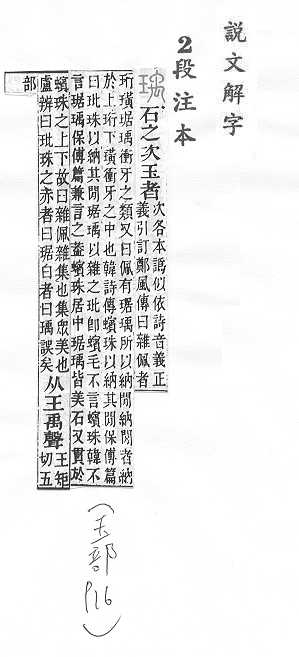 說文解字
2段注本
瑀 石之次玉者 次各本譌似依詩音義正
義引訂鄭風傳曰雜佩者
珩璜琚瑀衝牙之類又曰佩有琚瑀所以納閒納閒者納
於上珩下璜衝牙之中也韓詩傳蠙珠以納其閒保傅篇
曰玭珠以納其閒琚瑀以雜之玭卽蠙毛不言蠙珠韓不
言琚瑀保傅篇兼言之葢蠙珠居中琚瑀皆美石又貫於
蠙珠之上下故曰雜佩雜集也集衆美也
盧辨曰玭珠之赤者曰琚白者曰瑀誤矣 从王禹聲 王矩
切五
部
(玉部 P16)